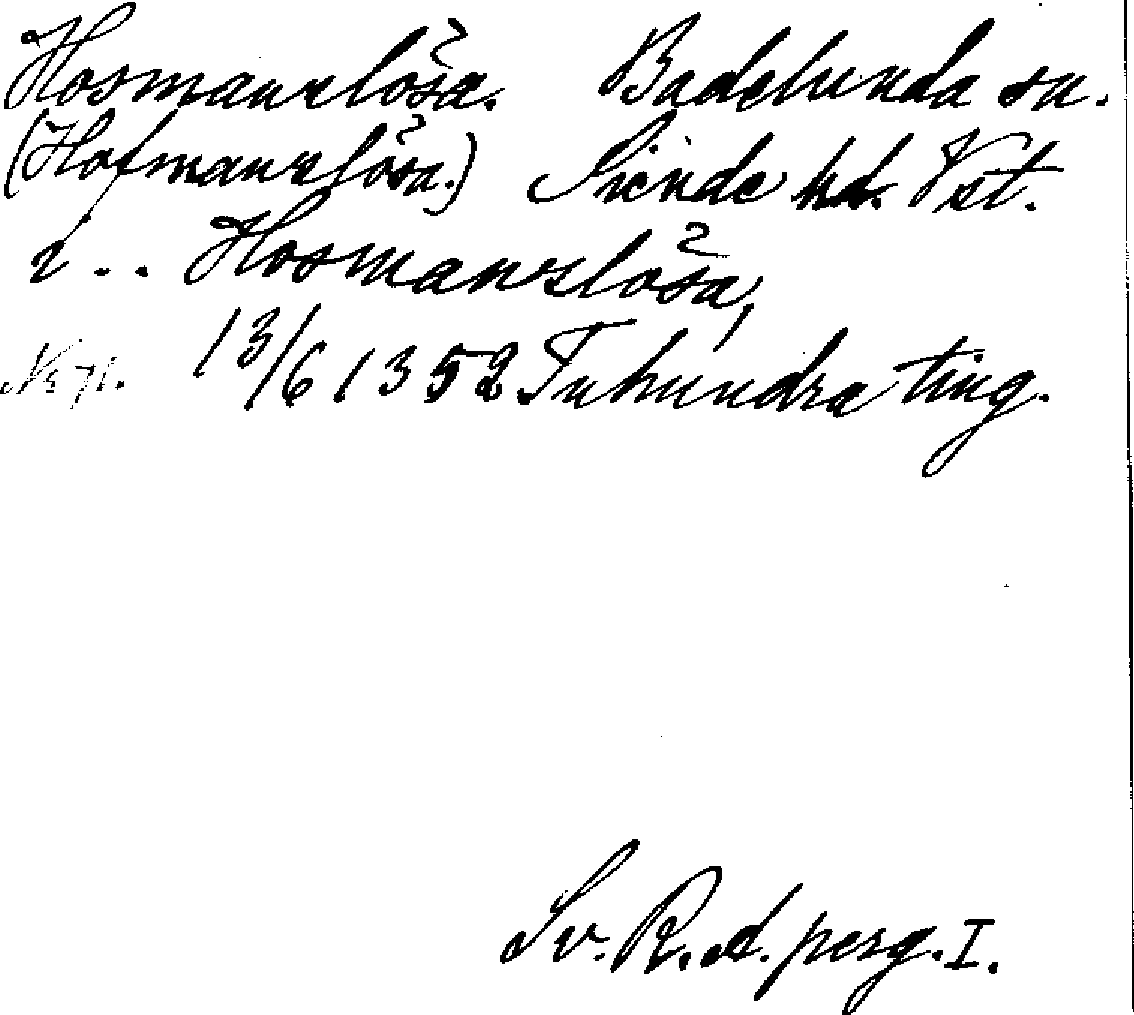 Hosmanslösa. Badelunda sn.
(Hofmanslösa.) Siende hd. Vst.
i .. Hosmanslösa,
No 71. 13/6 1352 Tuhundra ting.
Sv. R. A. perg. I.